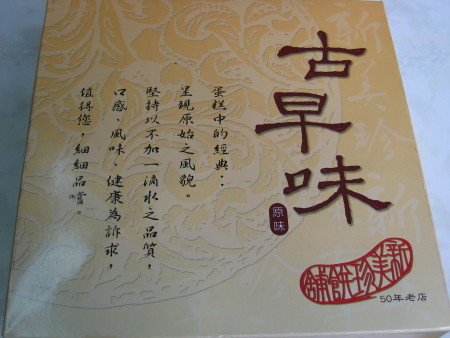 古早味
原味
新美珍餅舖
50年老店
蛋糕中的經典：
呈現原始之風貌。
堅持以不加一滴水之品質，
口感、風味、健康為訴求，
值得您，細細品嚐。